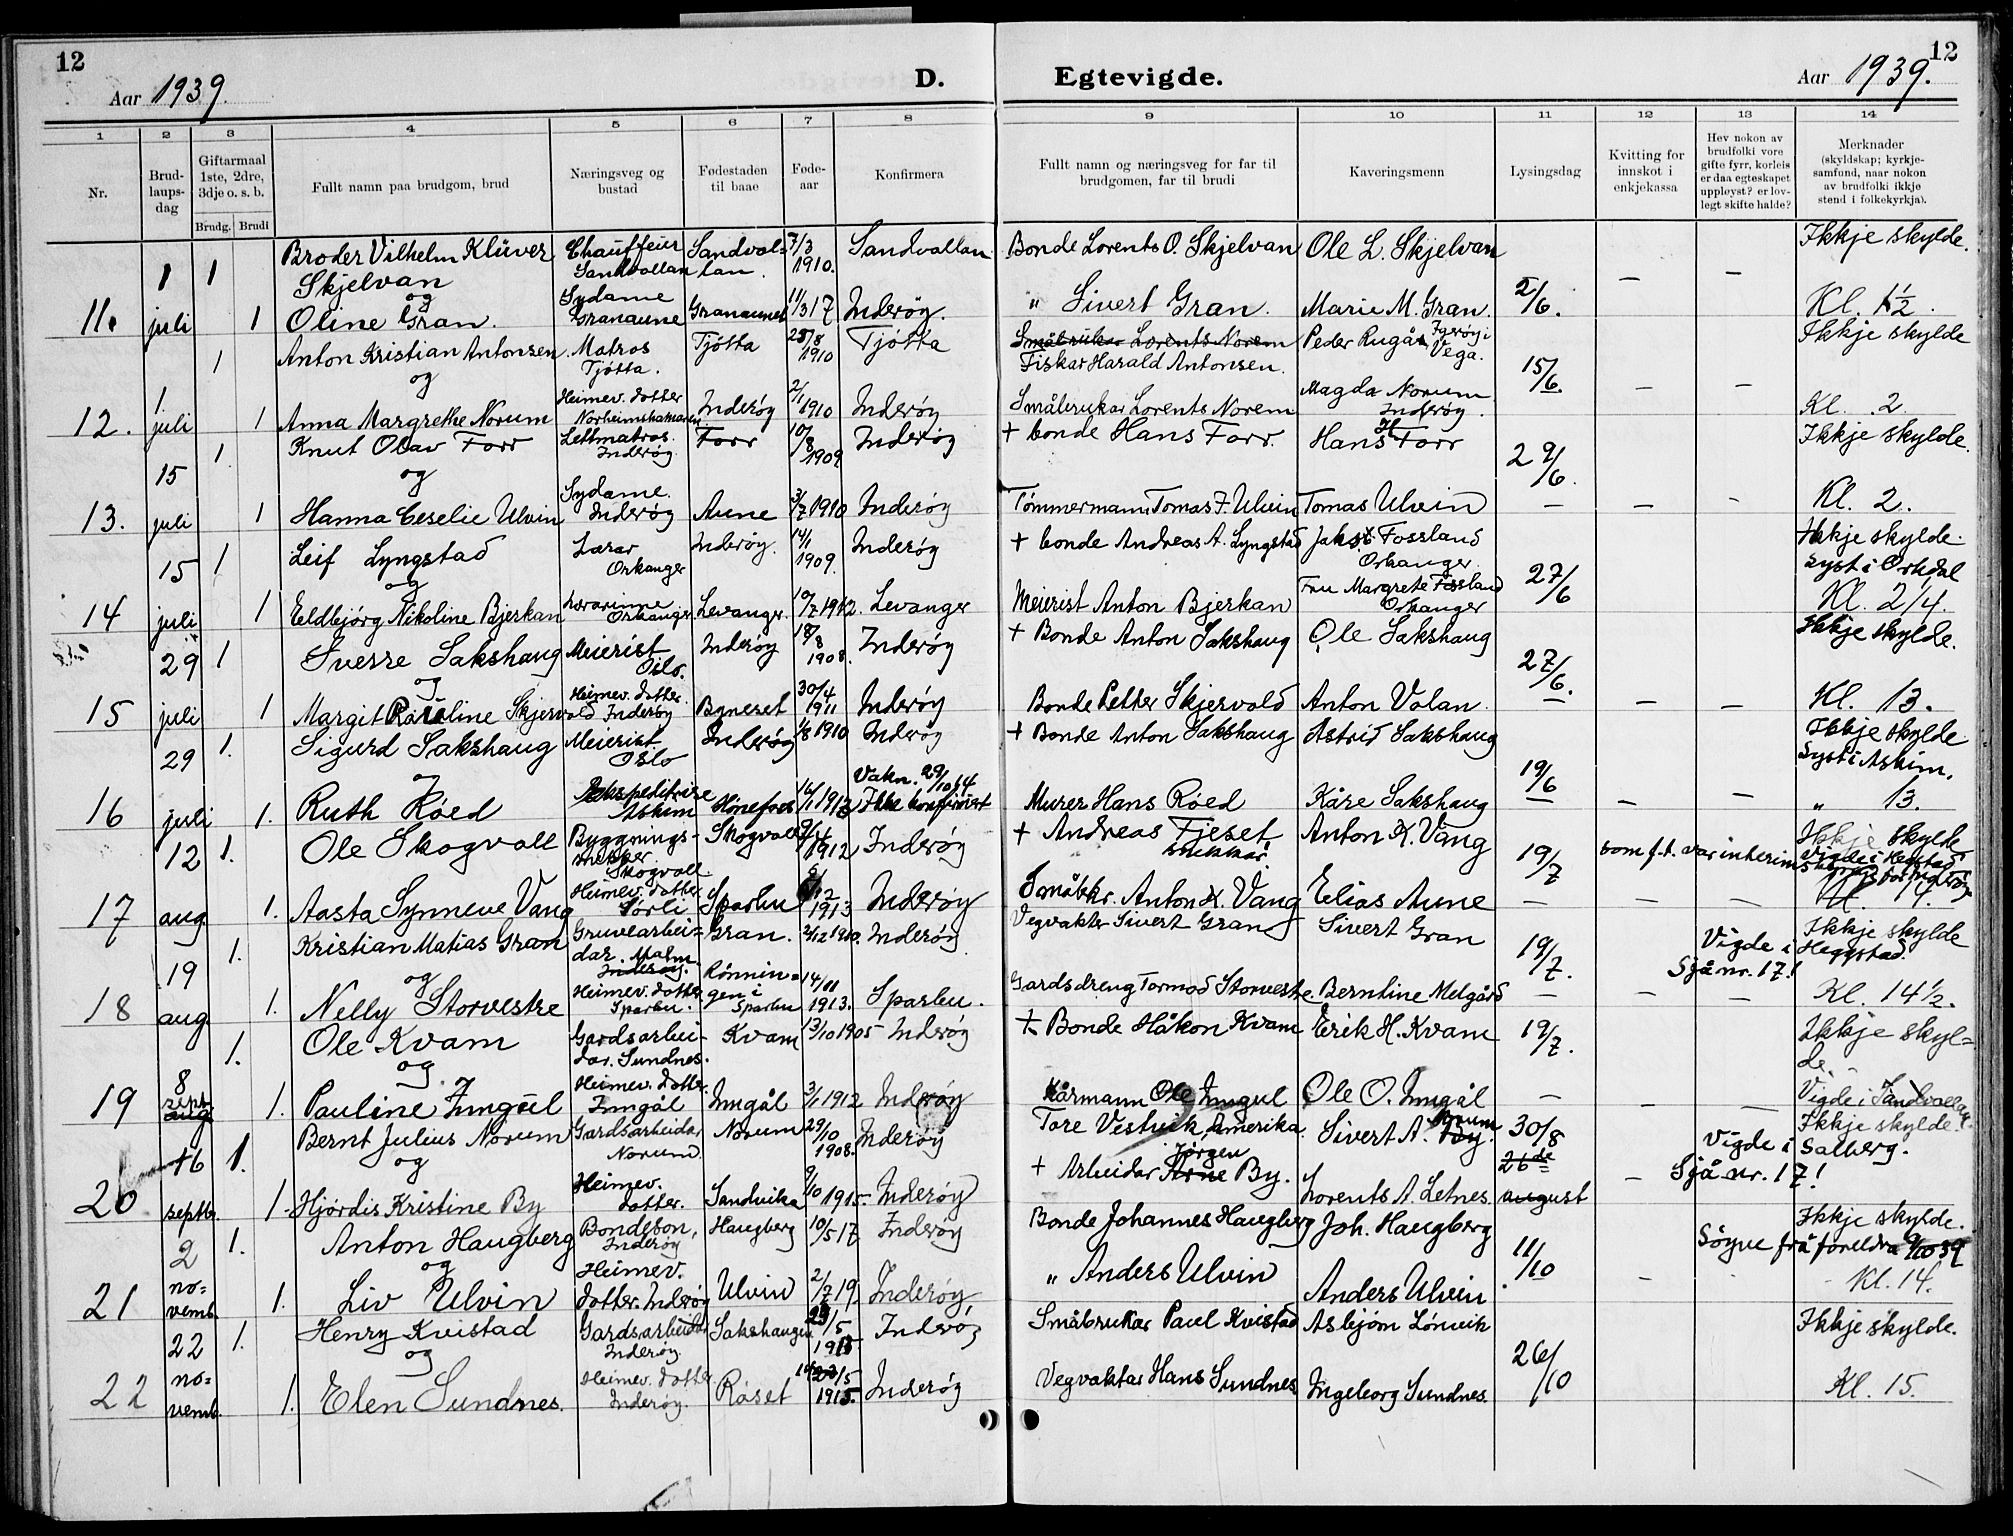 12
Aar 1939.
D.
Egtevigde.
Aar 1939.
12
1 2 3 4 5 6 7 8 9 10 11 12 13 14
Nr.
Brudlaupsdag
Giftarmaal 1ste, 2dre, 3dje o. s. b.
Brudg. Brudi
Fullt namn paa brudgom, brud
Næringsveg og bustad
Fødestaden til baae
Føde-aar
Konfirmera
Fullt namn og næringsveg for far til brudgomen, far til brudi
Kaveringsmenn
Lysingsdag
Kvitting for innskot i enkjekassa
Hev nokon av brudfolki vore gifte fyrr, korleis er daa egteskapet uppløyst? er lovlegt skifte halde?
Merknader (skyldskap; kyrkjesamfund, naar nokon av brudfolki ikkje stend i folkekyrkja).
11. 1 juli 1 Broder Vilhelm Klüver Skjelvan Chauffeur Sandvollan Sandvollan. 7/3 1910. Sandvollan Bonde Lorents O. Skjelvan Ole L. Skjelvan 2/6. — — Ikkje skylde.
og
1 Oline Gran. Sydame Granaune Granaunet 11/3 17 Inderøy. " Sivert Gran. Marie M. Gran. Kl. 1½
12. 1 juli 1 Anton Kristian Antonsen Matros Tjøtta. Tjøtta 28/8 1910 Tjøtta Småbrukar Lorents Norem Fiskar Harald Antonsen. Peder Rugås Igerøy i Vega. 15/6. — — Ikkje skylde
og
1 Anna Margrethe Norum Heimev. dotter Norheimshamaren Inderøy 2/1 1910 Inderøy Småbrukar Lorents Norem Magda Norum Inderøy. Kl. 2.
13. 15 juli 1. Knut Olav Forr Lettmatros. Inderøy Forr 10/8 1909 Inderøy + bonde Hans Forr. Hans H. Forr 29/6. Ikkje skylde.
og
1 Hanna Ceselie Ulvin Sydame. Inderøy Aune 3/7 1910 Inderøy Tømmermann Tomas J. Ulvin Tomas Ulvin — — - Kl. 2.
14 15 juli 1. Leif Lyngstad Lærar Orkanger Inderøy. 14/1 1909. Inderøy + bonde Andreas A. Lyngstad Jakob Fossland Orkanger. 27/6 Ikkje skylde. Lyst i Orkdal
og
1 Eldbjørg Nikoline Bjerkan Lærarinne Orkanger Levanger. 19/7 1912. Levanger Meierist Anton Bjerkan Fru Margrete Fossland Orkanger Kl. 2/4.
15 29 juli 1 Sverre Sakshaug Meierist Oslo. Inderøy 18/8 1908. Inderøy + Bonde Anton Sakshaug Ole Sakshaug 27/6. Ikkje skylde.
og
1 Margit Karoline Skjervold Heimev. dotter. Inderøy Byneset 30/4 1911 Inderøy Bonde Petter Skjervold Anton Volan. — — — Kl. 13.
16 29 juli 1. Sigurd Sakshaug Meierist Oslo Inderøy 1/8 1910 Inderøy + Bonde Anton Sakshaug Astrid Sakshaug 19/6 Ikkje skylde. Lyst i Askim.
1. Ruth Røed Ekspeditrise Askim Hønefoss 14/1 1913 Vakn. 29/10 14 Ikke konfirmert Murer Hans Røed Kåre Sakshaug — — — " 13.
17 12 aug. 1. Ole Skogvoll Byggnings-snekker Skogvoll Skogvoll 9/4 1912 Inderøy + Andreas Fjeset snekkar Anton K. Vang 19/7 som f.t. var interims Ikkje skylde Vigde i Heggstad
1. Aasta Synneve Vang Heimev. dotter Sørli Sparbu 12 1913 Inderøy Småbkr. Anton K. Vang Elias Aune — — — Kl. 14.
18 19 aug. 1. Kristian Matias Gran Gruvearbeidar. Malm Inderøy. Gran. 2/12 1910. Inderøy Vegvakter Sivert Gran Sivert Gran 19/7. Vigde i Heggstad. Sjå nr. 17! Ikkje skylde
og
1. Nelly Storvestre Heimev. dotter Sparbu. Rønningen i Sparbu 14/11 1913. Sparbu. Gardsdreng Tormod Storvestre. Berntine Melgård — — — Kl. 14½.
19 8 sept. aug 1. Ole Kvam Gardsarbeidar. Sundnes. Kvam 13/10 1905 Inderøy + Bonde Håkon Kvam Erik H. Kvam 19/7. Ikkje skylde.
og
1. Pauline Inngul Heimev. dotter. Inngål Inngål 3/1 1912 Inderøy Kårmann Ole Inngul Ole O. Inngål — — — Vigde i Sandvollan
20 16 septbr. 1. Bernt Julius Norum Gardsarbeidar Norum. Norum 29/10 1908. Inderøy Tore Vestvik, Amerika. Sivert A. Norum 30/8 Vigde i Salberg. Sjå nr. 17! Ikkje skylde.
og
1. Hjørdis Kristine By Heimev. dotter. Sandvika 9/10 1915. Inderøy + Arbeidar Arne Jørgen By. Lorents A. Letnes. 26de august —
21 2 november 1. Anton Haugberg Bondeson, Inderøy Haugberg 10/5 17 Inderøy Bonde Johannes Haugberg Joh. Haugberg 11/10 Søyne frå foreldra 9/10 39 Ikkje skylde.
og
1. Liv Ulvin Heimev. dotter. Inderøy Ulvin 2/7 19. Inderøy, " Anders Ulvin Anders Ulvin — Kl. 14.
22 22 november 1. Henry Kvistad Gardsarbeidar Inderøy. Sakshaugen 23/5 1915 Inderøy Småbrukar Paul Kvistad Asbjørn Lønvik 26/10 Ikkje skylde.
og
1. Elen Sundnes. Heimev. dotter. Inderøy. Røset 14/5 1915. Inderøy Vegvaktar Hans Sundnes Ingeborg Sundnes. Kl. 15.